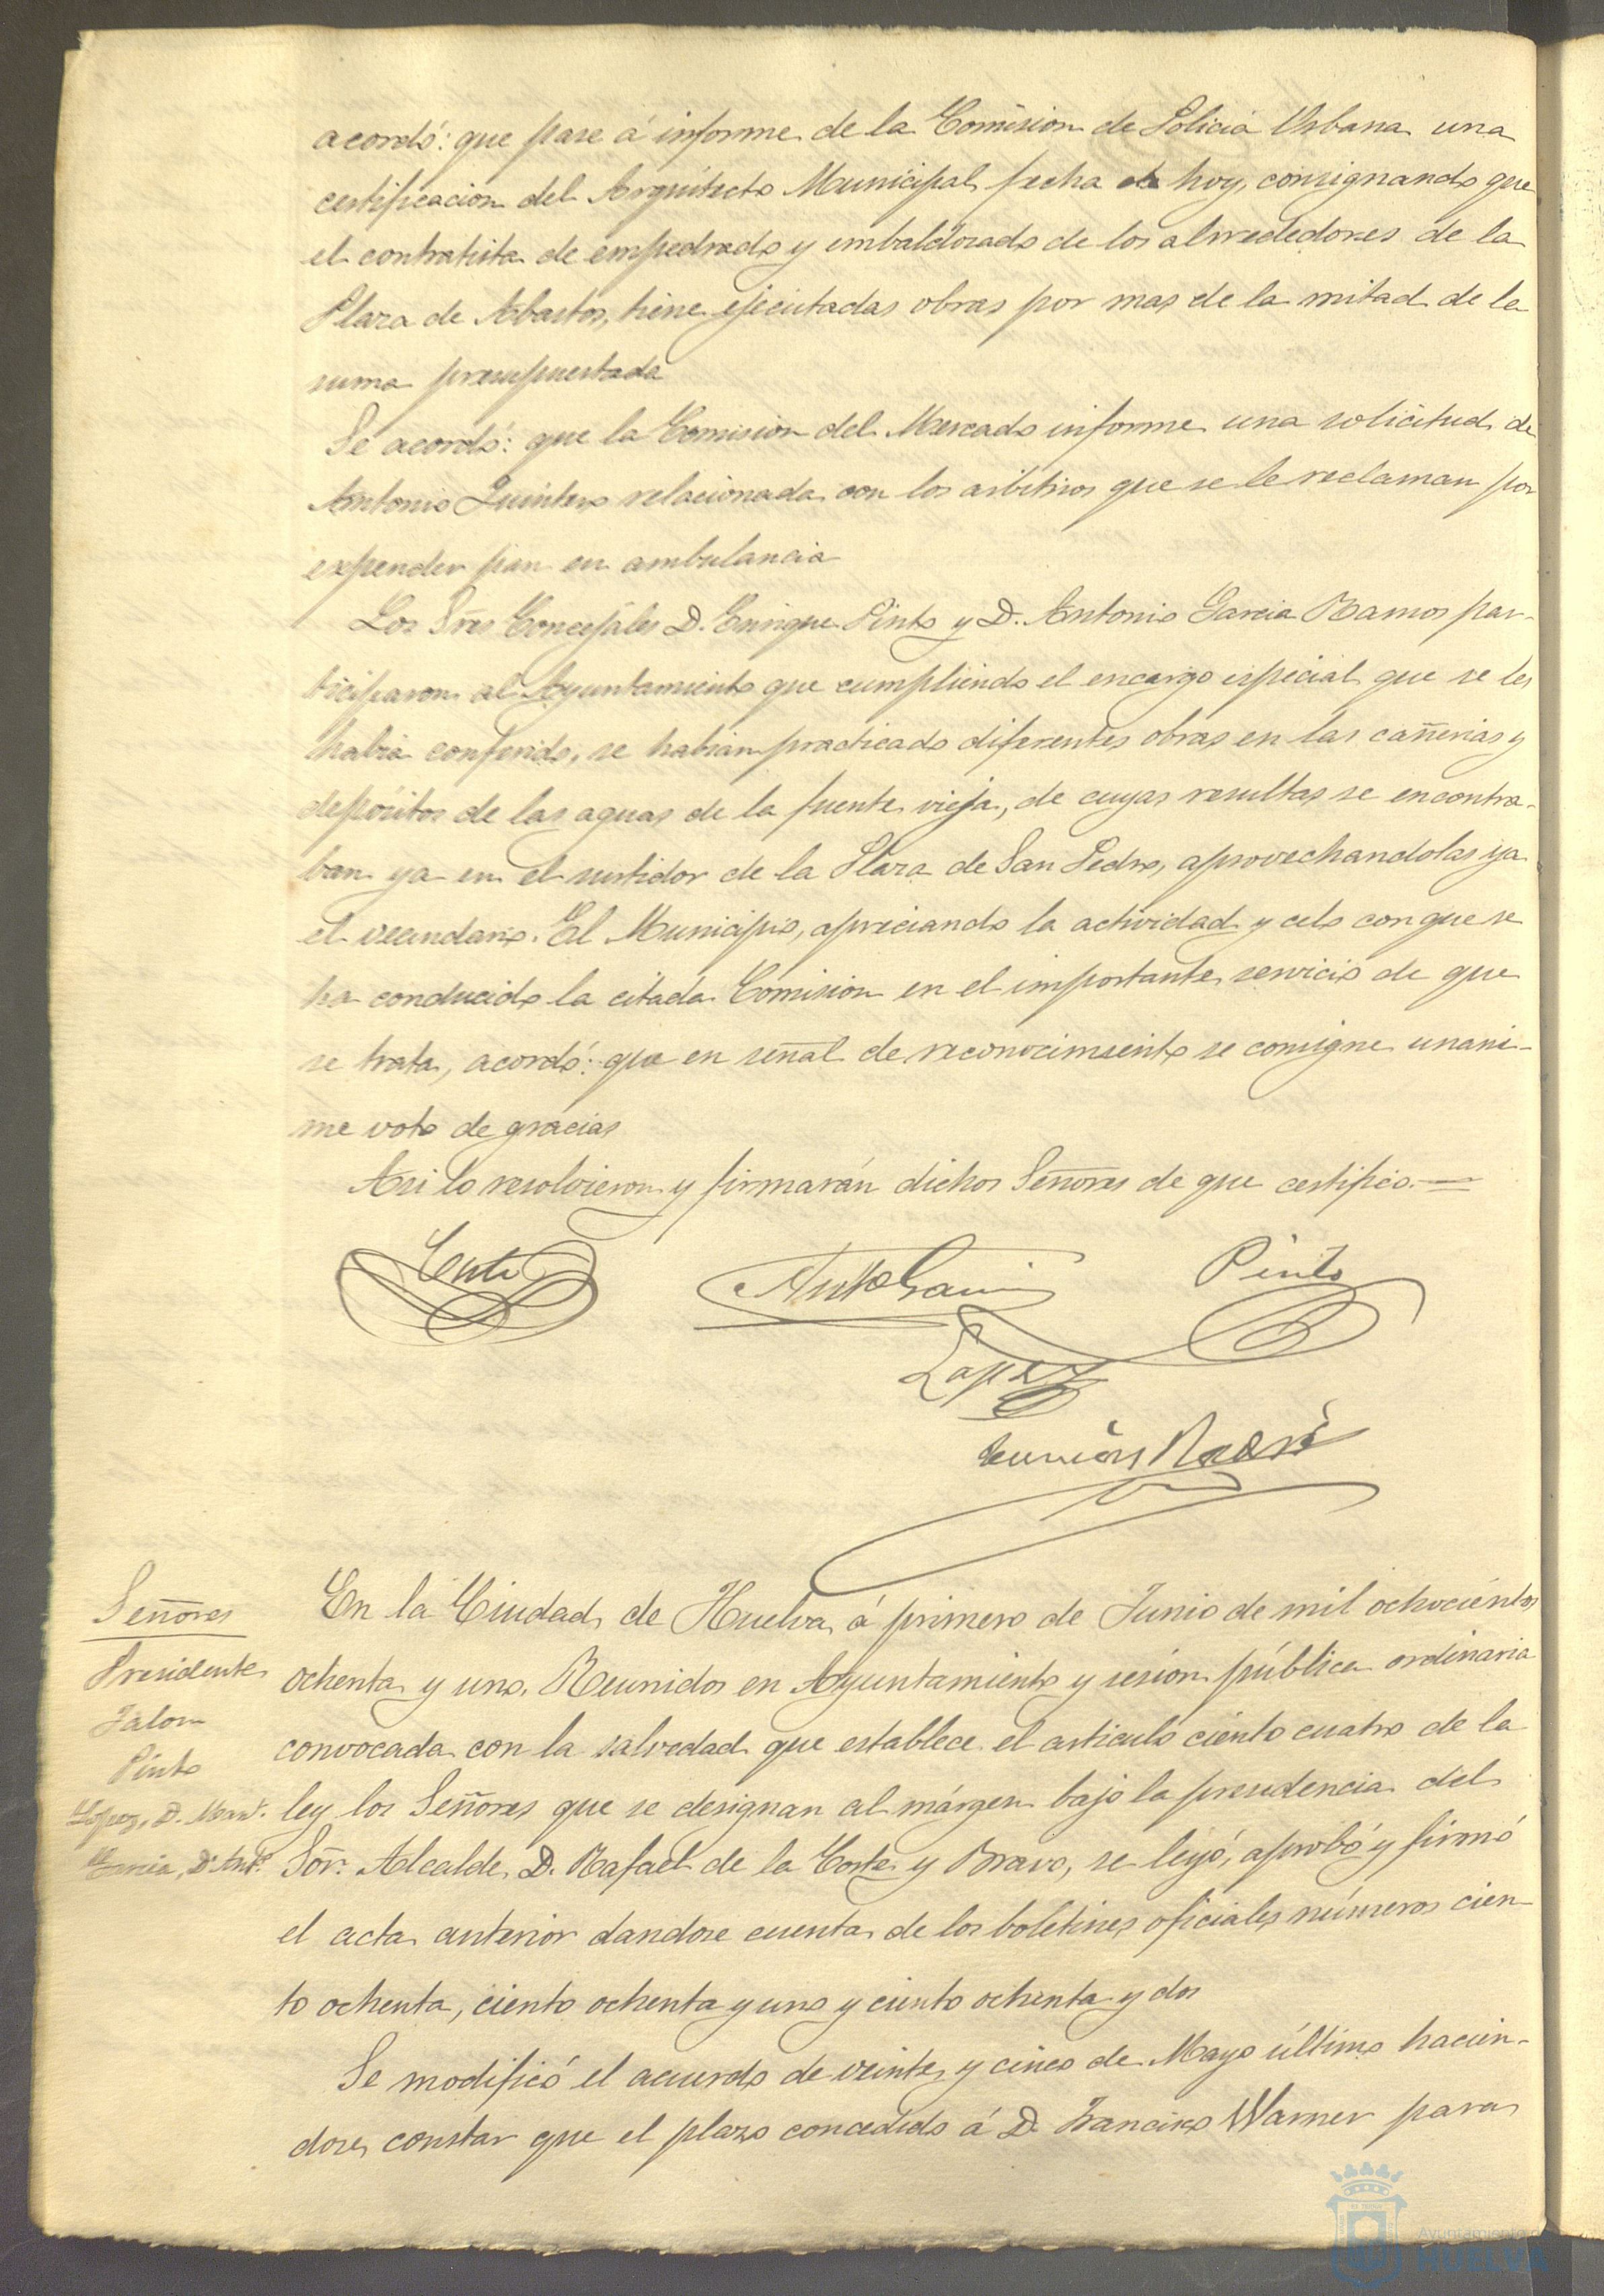 acordó: que pase á informe de la Comision de Policia Urbana una
certificacion del Arquitecto Municipal fecha de hoy, consignando que
el contratista de empedrado y embaldosado de los alrrededores de la
Plaza de Abastos, tiene ejecutadas obras por mas de la mitad de la
suma presupuestada
Se acordó: que la Comision del Mercado informe una solicitud de
Antonio Quintero relacionada con los arbitrios que se le reclaman por
expender pan en ambulancia
Los Sres Concejales D. Enrique Pinto y D. Antonio Garcia Ramos par-
ticiparon al Ayuntamiento que cumpliendo el encargo especial que se les
habia conferido, se habian practicado diferentes obras en las cañerias y
depósitos de las aguas de la fuente vieja, de cuyas resultas se encontra-
ban ya en el surtidor de la Plaza de San Pedro, aprovechandolas ya
el vecindario. El Municipio, apreciando la actividad y celo con que se
ha conducido la citada Comision en el importante servicio de que
se trata, acordó: que en señal de reconocimiento se consigne unani-
me voto de gracias
Asi lo resolvieron y firmarán dichos Señores de que certifico.=
Corte
Antº Garcia
Pinto
Lopez
Señores
Presidente
Jalon
Pinto
Lopez, D. Manl.
Garcia, D. Antº.
En la Ciudad de Huelva á primero de Junio de mil ochocientos
ochenta y uno. Reunidos en Ayuntamiento y sesion pública ordinaria
convocada con la salvedad que establece el articulo ciento cuatro de la
ley los Señores que se designan al márgen bajo la presidencia del
Sor. Alcalde D. Rafael de la Corte y Bravo, se leyó, aprobó y firmó
el acta anterior dandose cuenta de los boletines oficiales números cien
to ochenta, ciento ochenta y uno y ciento ochenta y dos
Se modificó el acuerdo de veinte y cinco de Mayo último hacien-
dose constar que el plazo concedido á D. Francisco Warner para
Ayuntamiento de
HUELVA